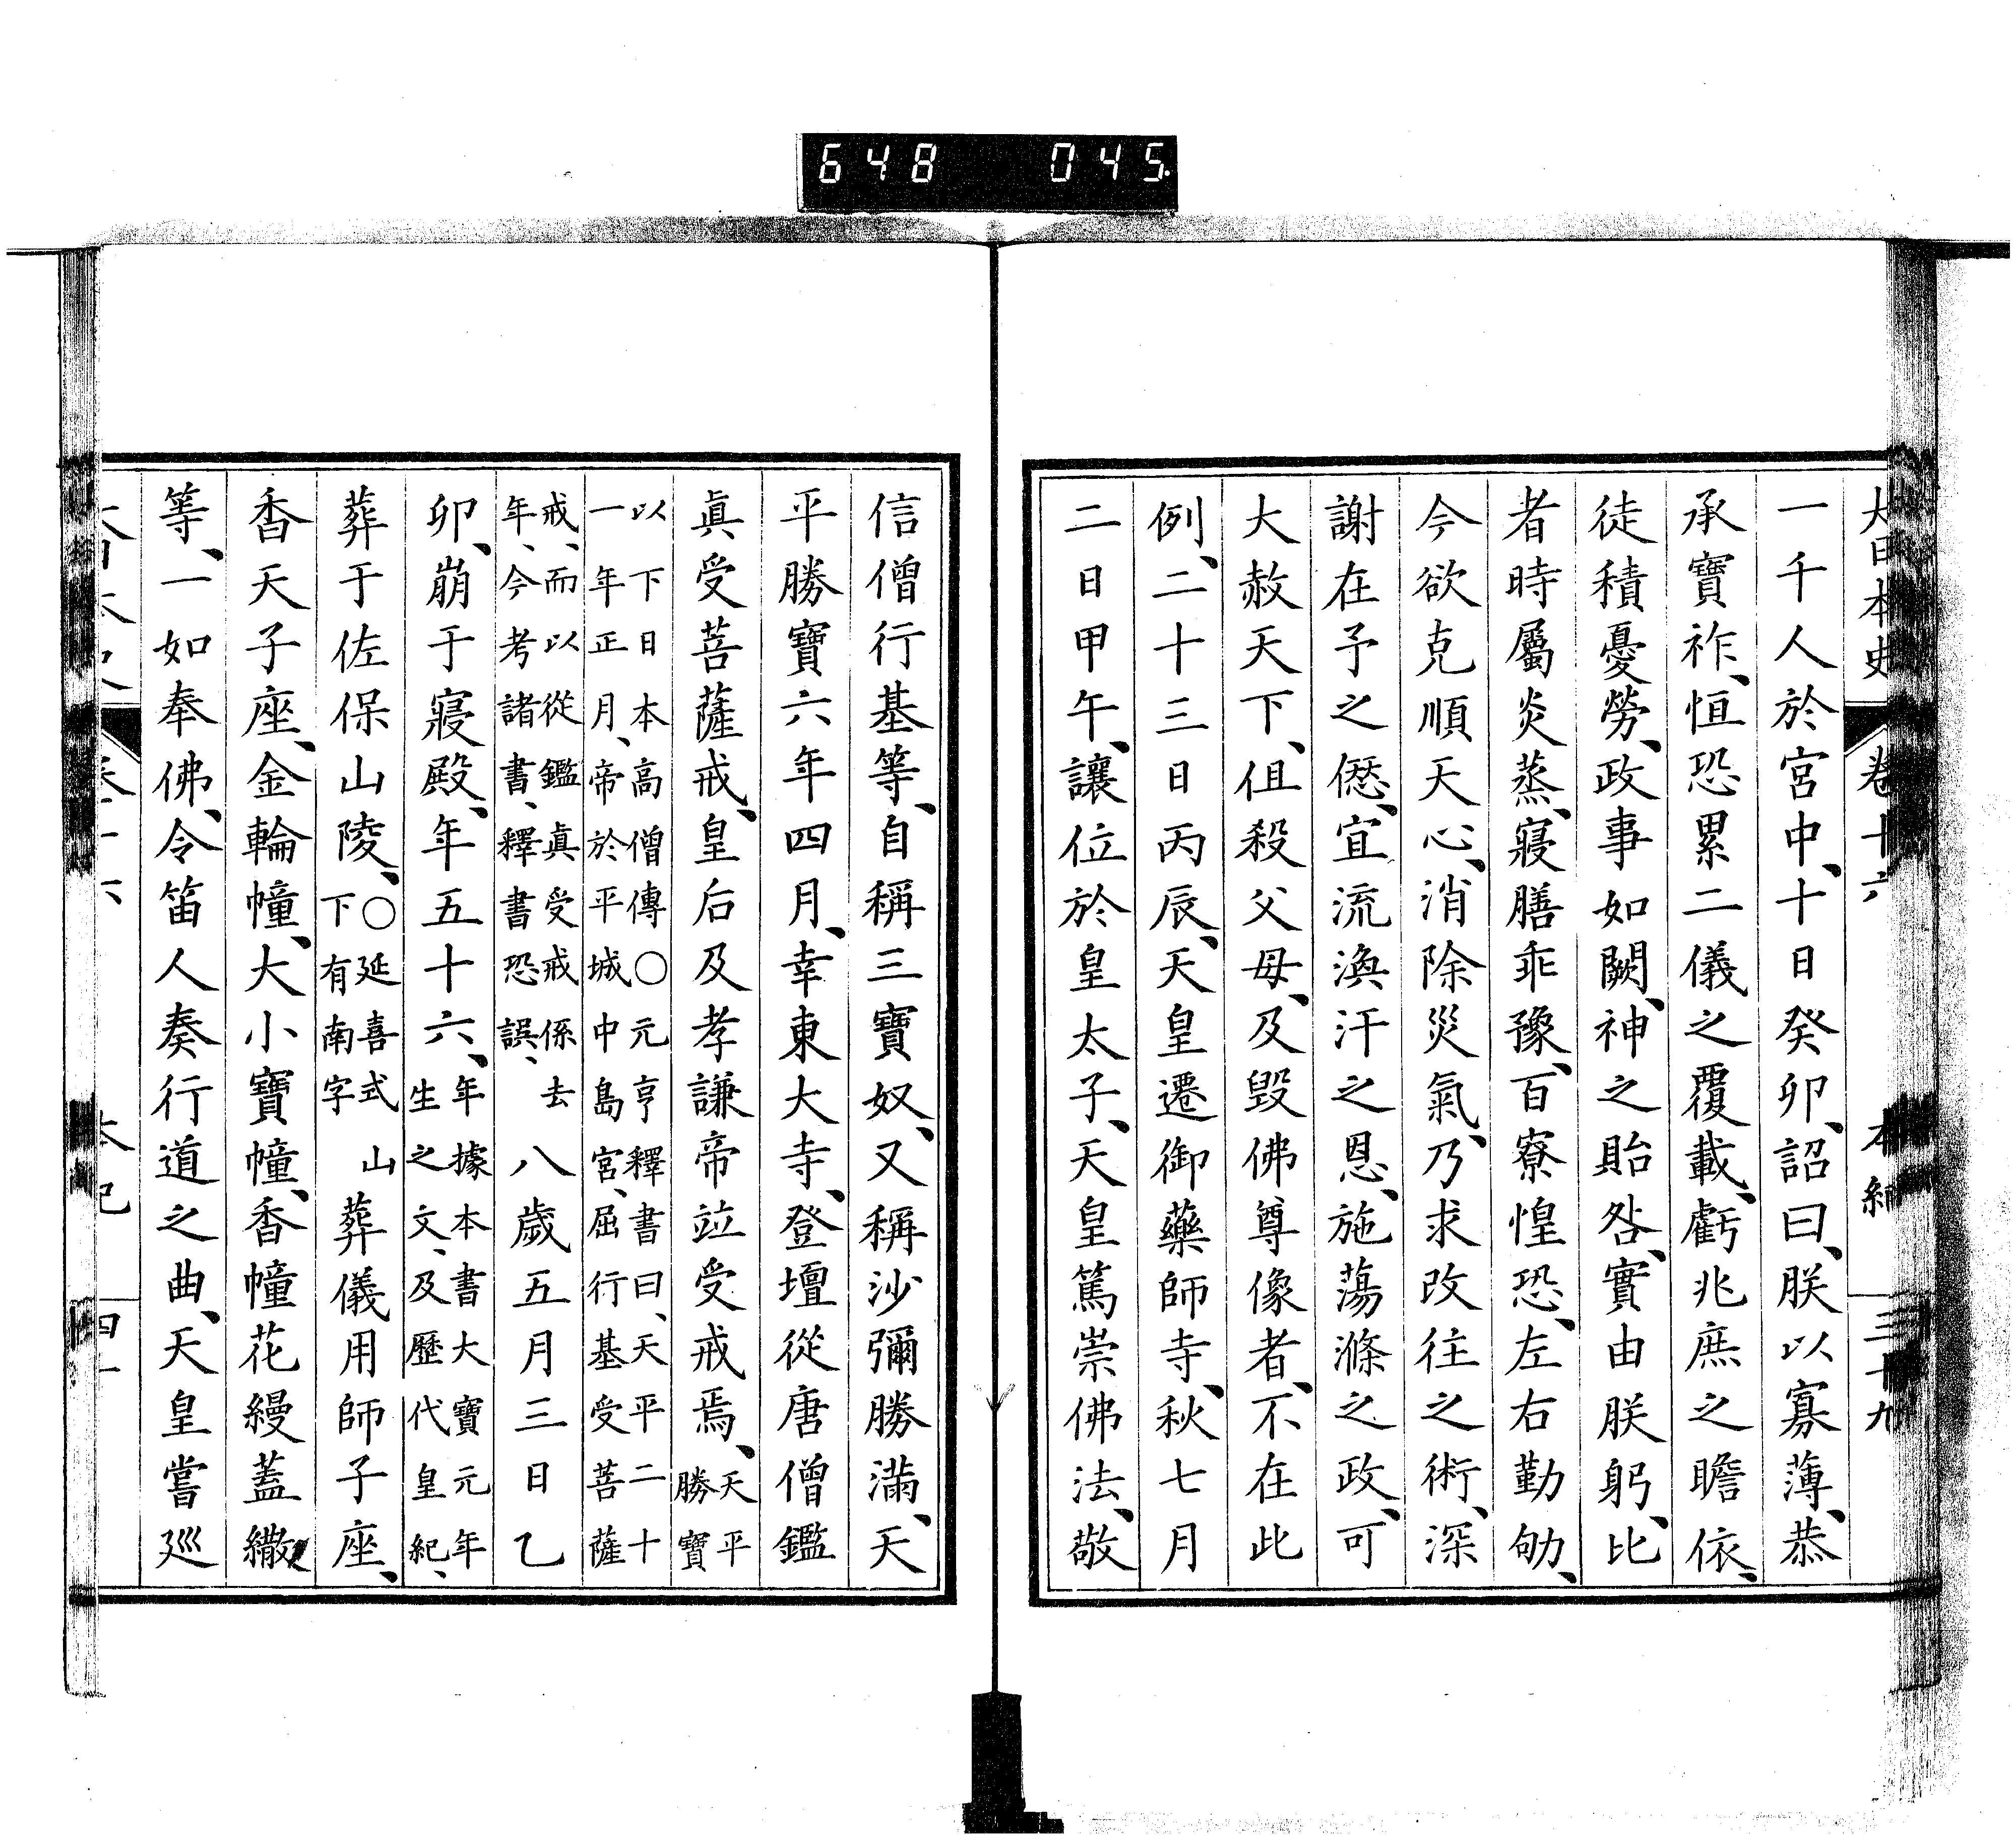 648 045.
大日本史 卷十六 本紀 三十九
一千人於宮中、十日癸卯、詔曰、朕以寡薄、恭
承寶祚、恒恐累二儀之覆載、虧兆庶之瞻依、
徒積憂勞、政事如闕、神之貽咎、實由朕躬、比
者時屬炎蒸、寢膳乖豫、百寮惶恐、左右勤劬、
今欲克順天心、消除災氣、乃求改往之術、深
謝在予之愆、宜流渙汗之恩、施蕩滌之政、可
大赦天下、但殺父母、及毀佛尊像者、不在此
例、二十三日丙辰、天皇遷御藥師寺、秋七月
二日甲午、讓位於皇太子、天皇篤崇佛法、敬
信僧行基等、自稱三寶奴、又稱沙彌勝滿、天
平勝寶六年四月、幸東大寺、登壇從唐僧鑑
眞受菩薩戒、皇后及孝謙帝竝受戒焉、天平勝寶
以下日本高僧傳〇元亨釋書曰、天平二十
一年正月、帝於平城中島宮、屈行基受菩薩
戒、而以從鑑眞受戒係去
年、今考諸書、釋書恐誤、八歲五月三日乙
卯、崩于寢殿、年五十六、年據本書大寶元年生之文、及歷代皇紀、
葬于佐保山陵、〇延喜式山下有南字葬儀用師子座、
香天子座、金輪幢、大小寶幢、香幢花縵蓋繖
等、一如奉佛、令笛人奏行道之曲、天皇嘗巡